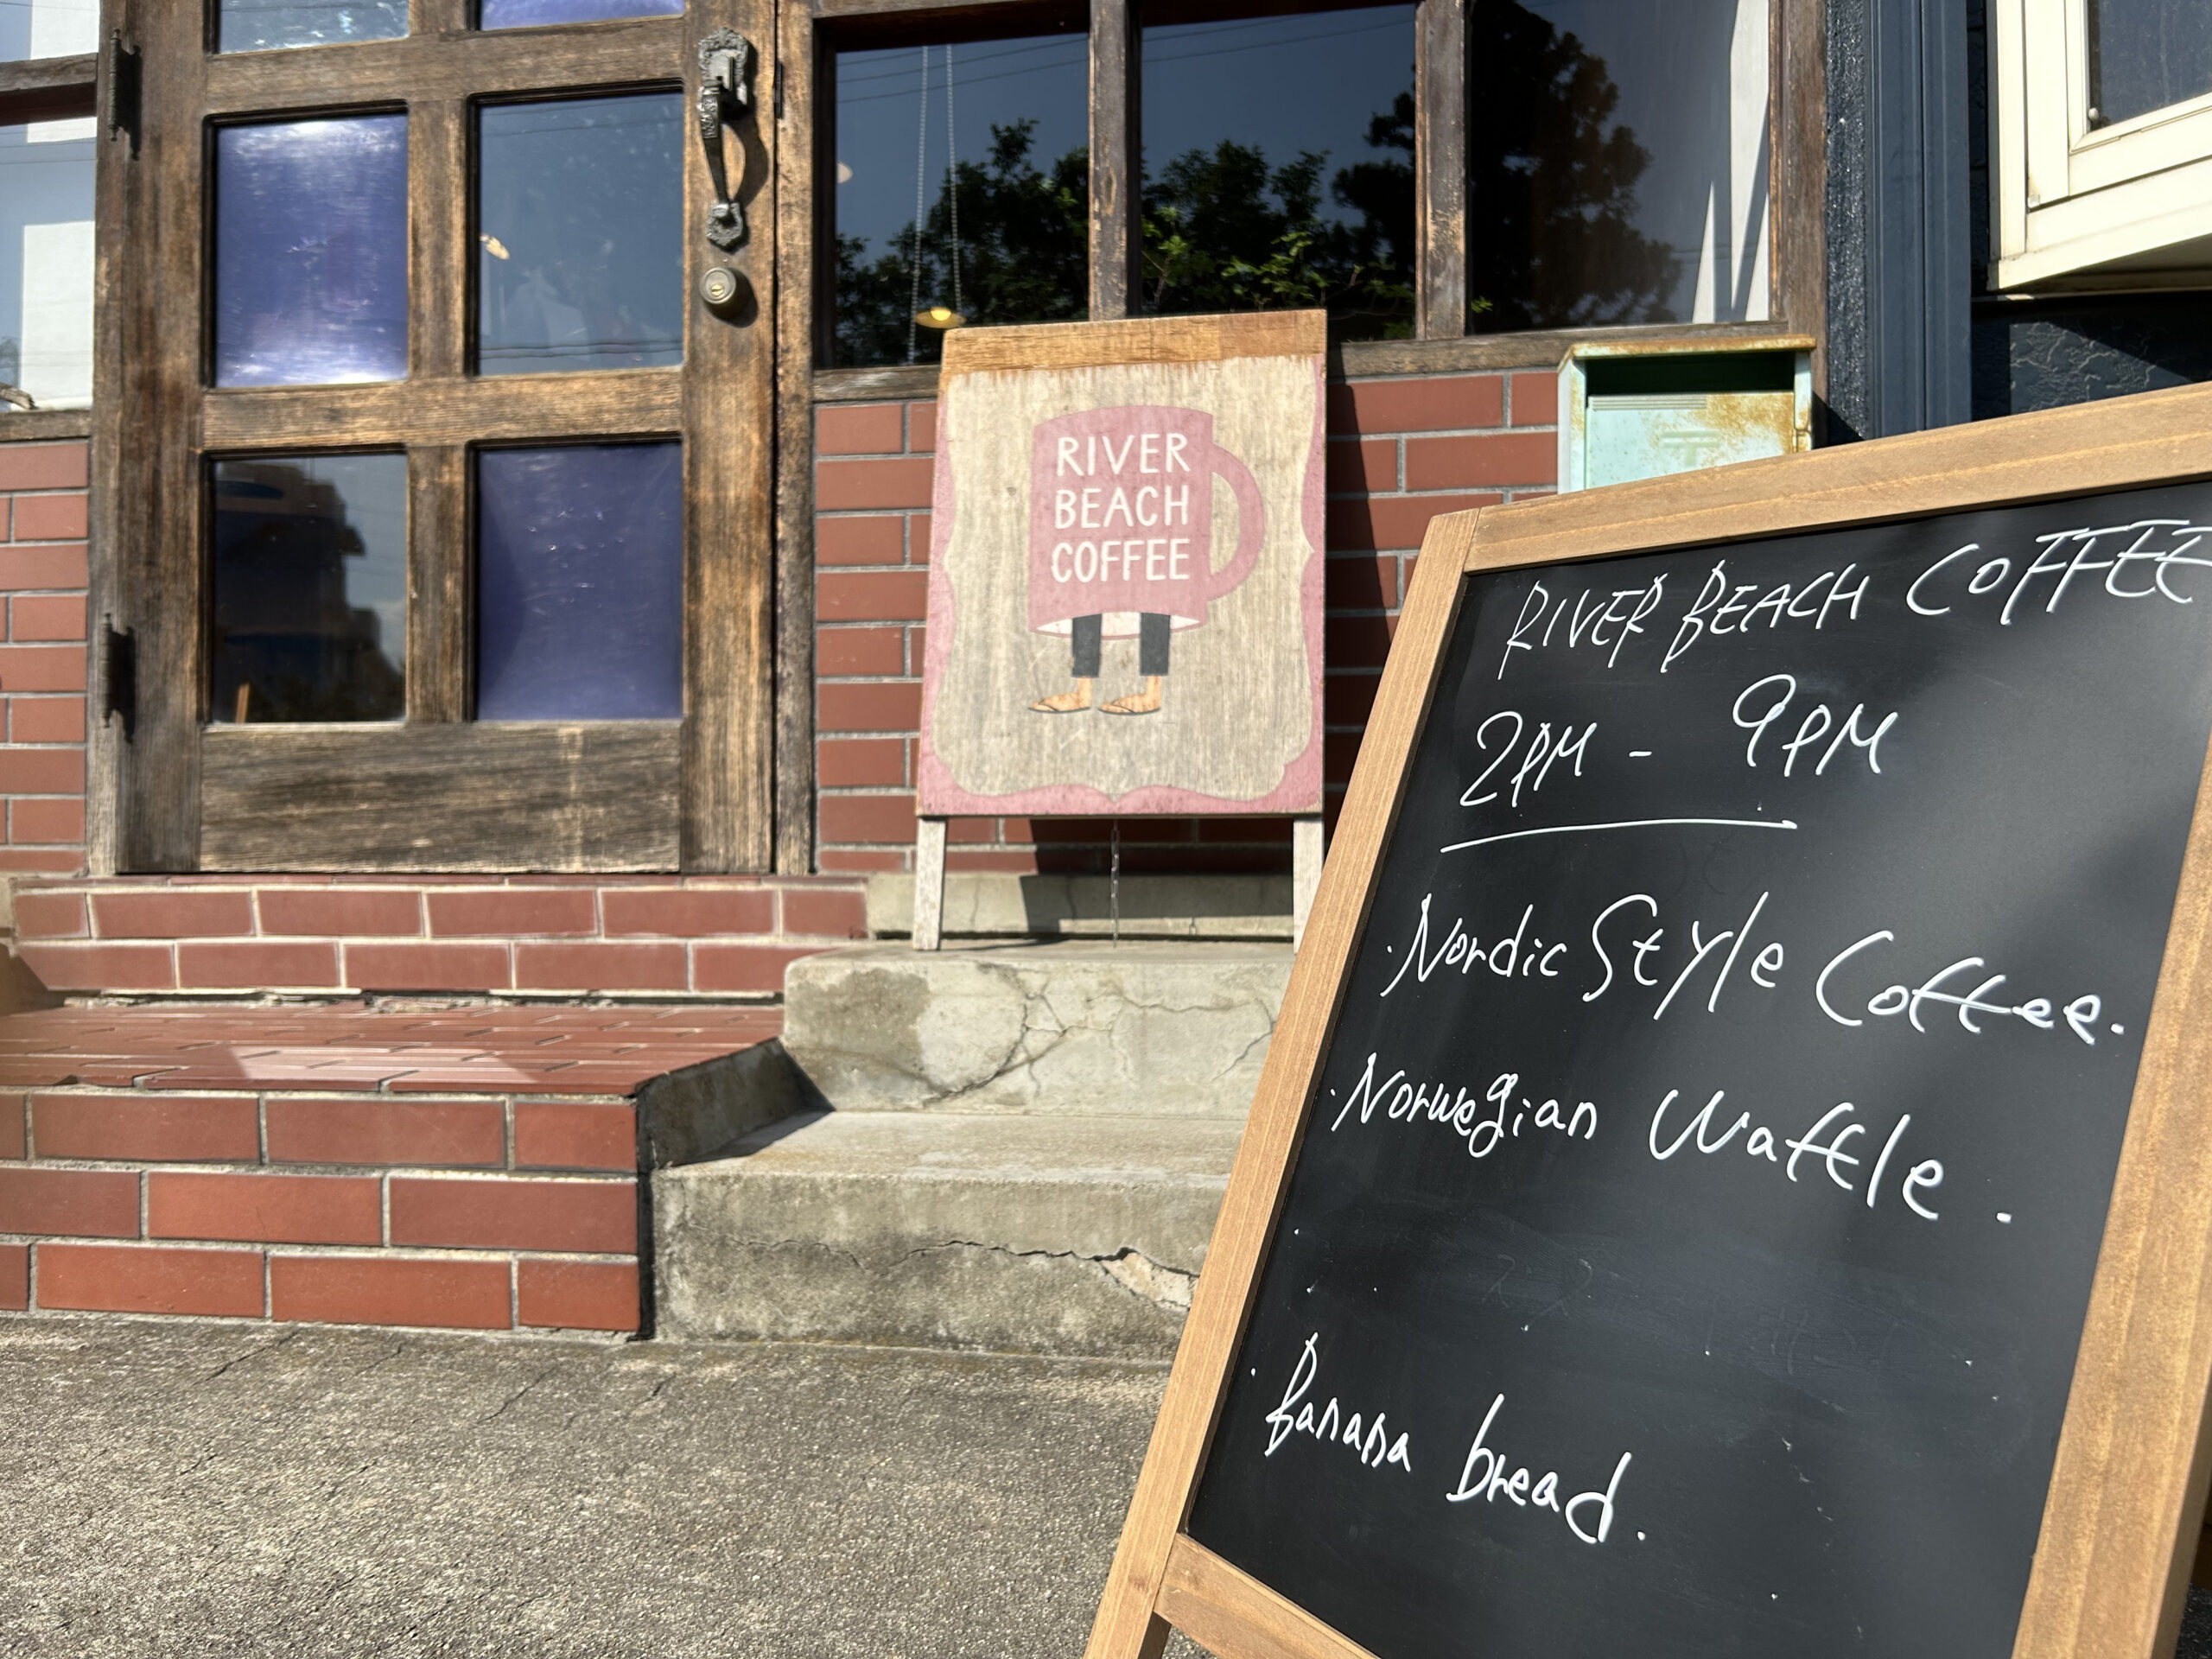 RIVER
BEACH
COFFEE
RIVER BEACH COFFEE
2PM - 9PM
· Nordic Style Coffee.
· Norwegian Waffle.
· Banana bread.